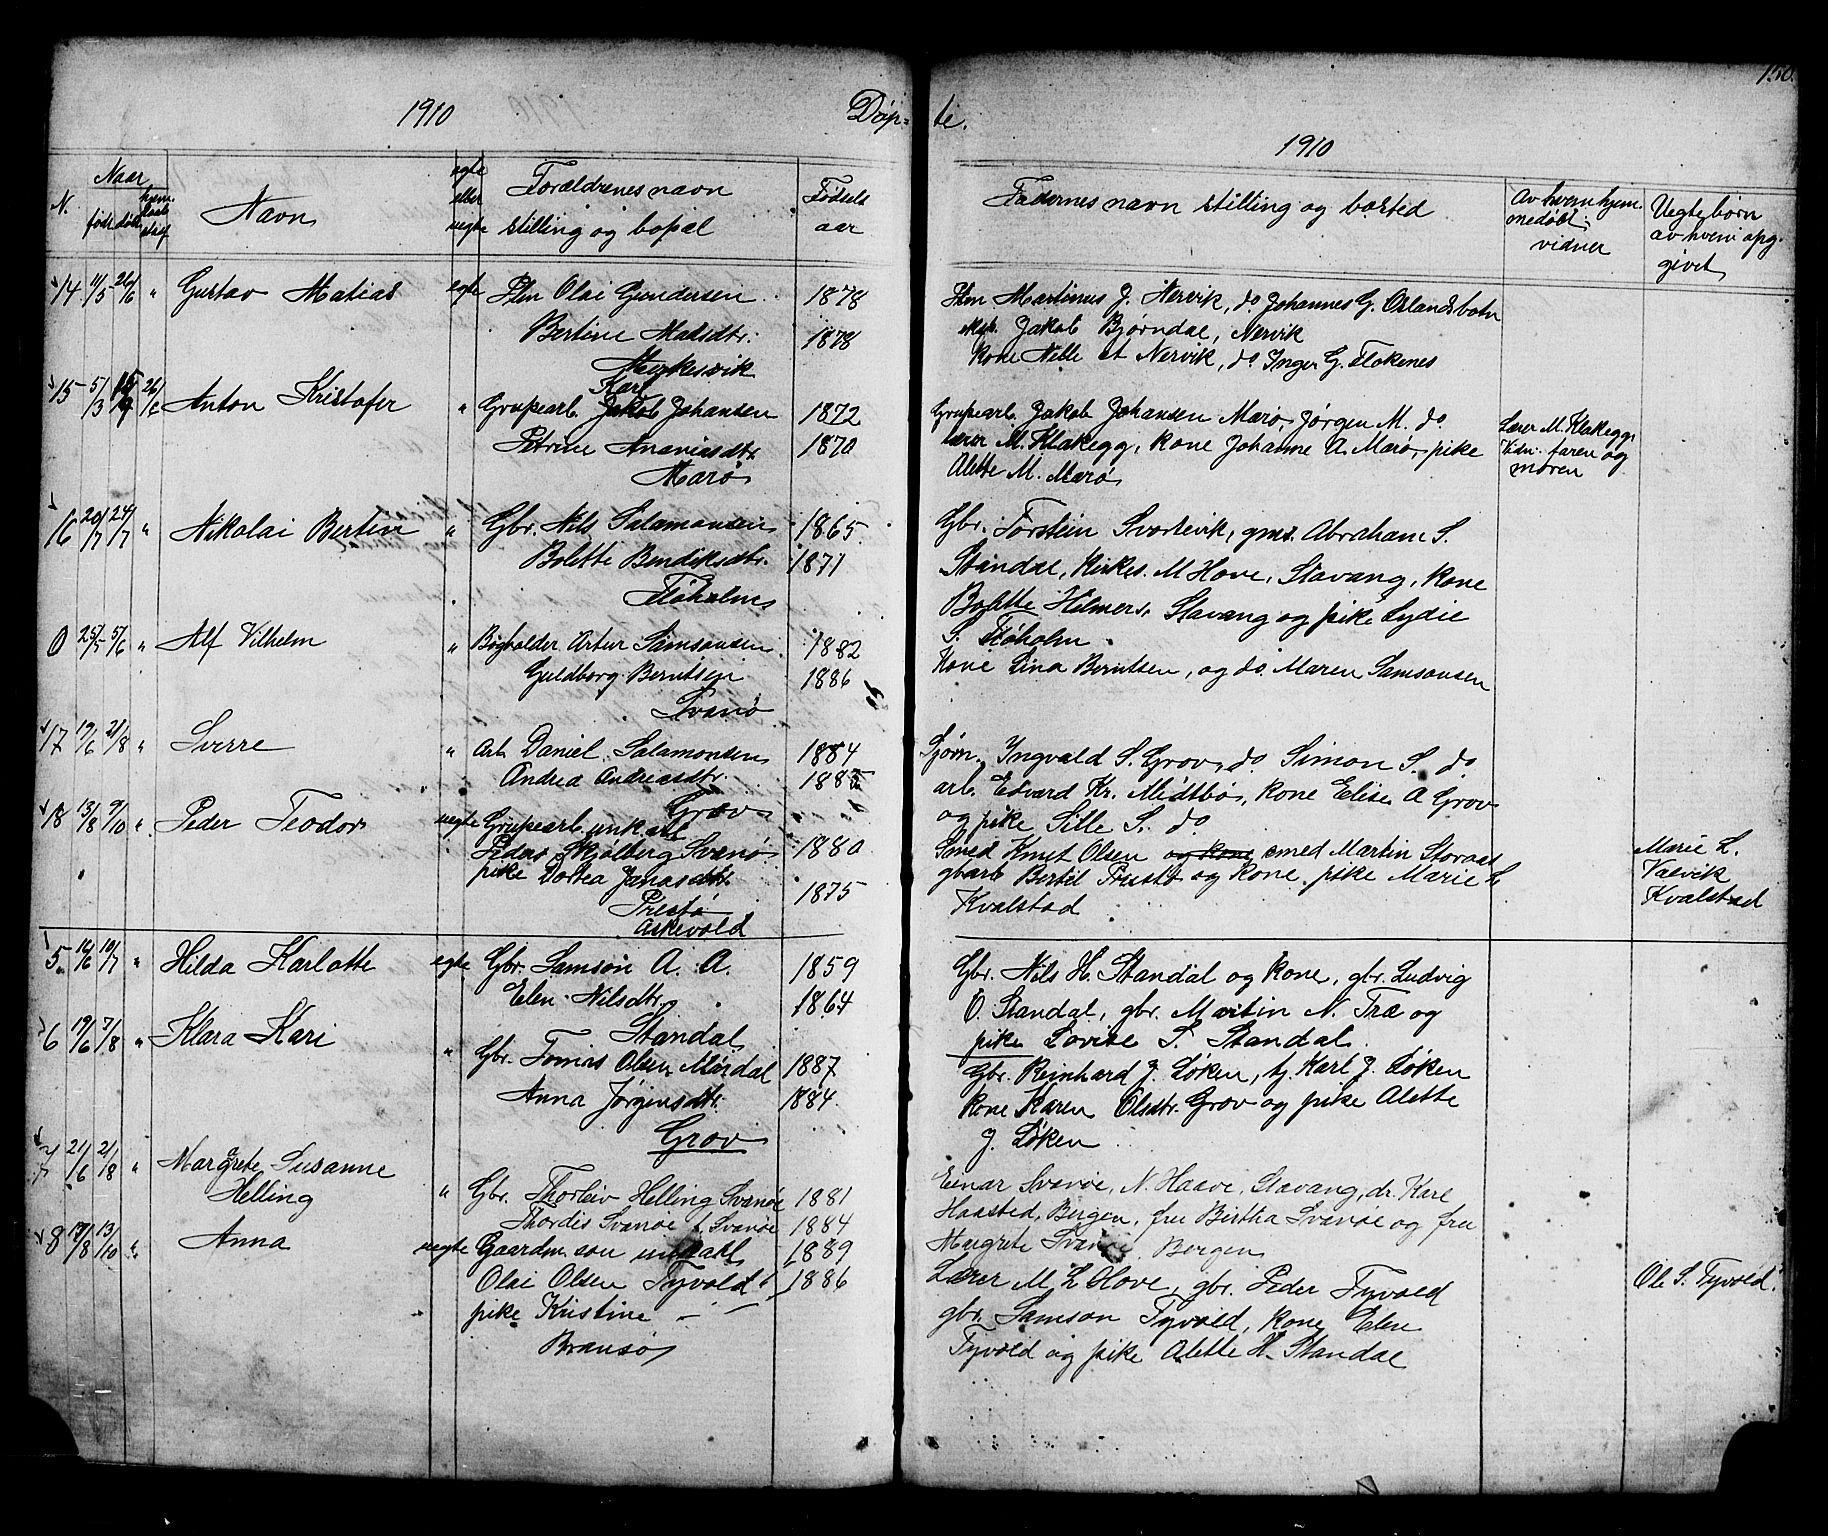 150.
1910
Døp=
te.
1910
N.
Naar
født
døbt
hjem.
Navn
egte
eller
uegte
Forældrenes navn
stilling og bopæl
Fødsels
aar
Fadernes navn stilling og bosted
Av hvem hjem.
medøbt.
vidner
Uegte børn
av hvem opg.
givet
14 11/5 26/6 " Gustav Matias egte Olai Gundersen 1878
Bertine Matsdtr. 1878
Myklesvik
Martinus J. Nervik, do Johannes G. Oslandsbotn
Jakob Bjørndal, Nervik
kone Nelle et Nervik, do Inger G. Flokenes
15 5/3 Anton Kristofer " Grupearb. Karl Jakob Johansen 1872
Petrine Ananiasdtr. 1870
Marø
Grupearb. Jakob Johansen Marø, Jørgen M. do
lærer M. Klakegg, kone Johanne A. Marø, pike
Alette M. Marø
Lærer M. Klakegg.
Vidn. faren og
moren
16 20/7 24/7 " Nikolai Bertin " Gbr. Nils Salamonsen 1865
Bolette Bendiksdtr. 1871
Tløholm
Gbr. Torstein Svortevik, gms. Abraham S.
Standal, Kirkes. M Hove, Stavang, kone
Bolette Hilmers, Stavang og pike Lydie
S. Fløholm
0 25/5 5/6 " Alf Vilhelm " Bogholder Artur Samsonsen 1882
Guldborg Berntsen 1886
Svanø
Kone Lina Berntsen, og do. Maren Samsonsen
17 19/6 21/8 " Sverre " Arb. Daniel Salamonsen 1884
Andrea Andreasdtr. 1885
Grov
Sjøm. Ingvald S. Grov, do Simon S. do
arb. Edvard Kr. Midtbø, kone Elise A Grov
og pike Sille S. do
18 13/8 9/10 " Peder Teodor uegte Grupearb. unkarl
Peder Skjolberg Svanø 1880
pike Dortea Jonasdtr. 1875
Prestø
Askevold
Smed Knut Olsen og kone smed Martin Storaas
gbarb Bertil Prestø og kone, pike Marie L
Kvalstad
Marie L.
Valvik
Kvalstad
5 14/6 10/7 " Hilda Karlotte egte Gbr. Samson A. A. 1859
Elen Nilsdtr. 1864
Standal
Gbr. Nils H. Standal og kone, gbr. Ludvig
O. Standal, gbr. Martin N. Træ og
pike Lovise S. Standal
6 19/6 7/8 " Klara Kari " Gbr. Tomas Olsen Mørdal 1887
Anna Jørgensdtr. 1884
Grov
Gbr. Reinhard J. Løken, tj. Karl J. Løken
kone Karen Olsdtr. Grov og pike Alette
J. Løken
7 21/6 21/8 " Margrete Susanne
Helling " Gbr. Thorleiv Helling Svanøe 1881
Thordis Svanøe f. Svanøe 1884
Einar Svanøe, N. Haave, Stavang, dr. Karl
Haasted, Bergen, fru Birtha Svanøe og fru
Margrete Svanøe, Bergen
8 17/8 13/10 " Anna uegte Gaardm. søn unkarl 1889
Olai Olsen Tyvold 1886
pike Kristine
Bransø
Lærer M L Hove, gbr. Peder Tyvold
gbr. Samson Tyvold, kone Elen
Tyvold og pike Alette H. Standal
Ole S. Tyvold.